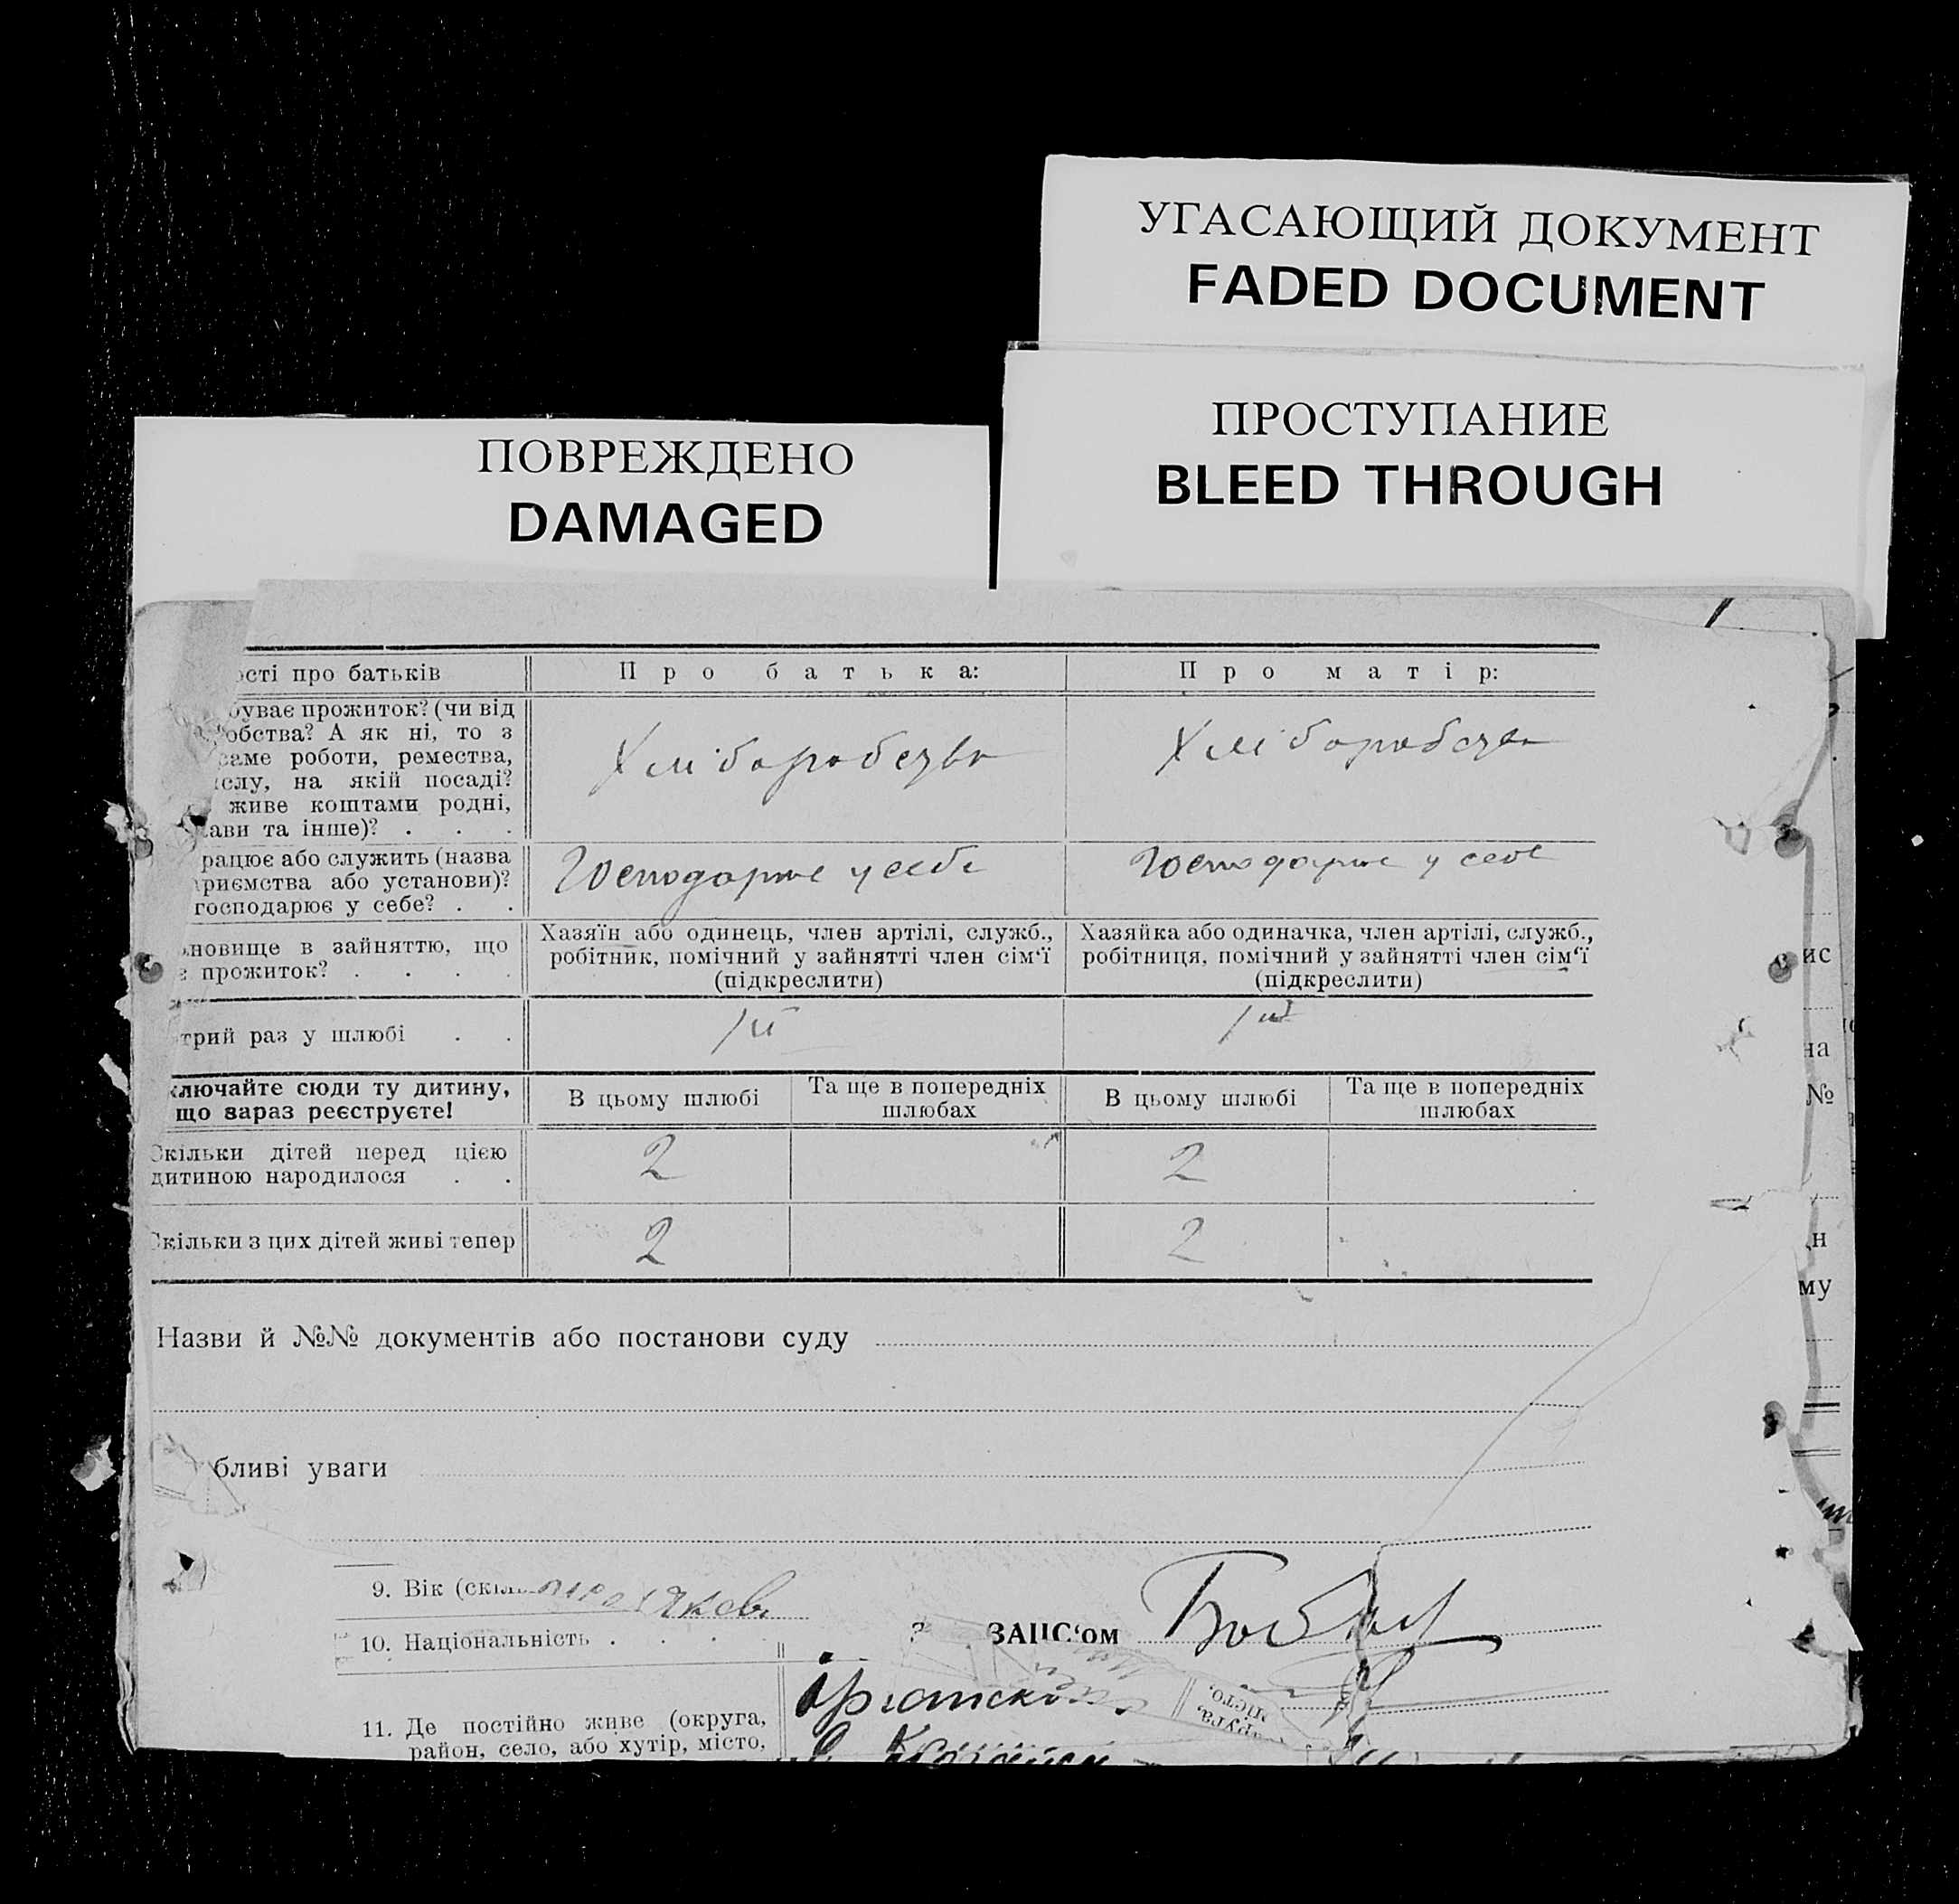 УГАСАЮЩИЙ ДОКУМЕНТ
FADED DOCUMENT
ПРОСТУПАНИЕ
BLEED THROUGH
ПОВРЕЖДЕНО
DAMAGED
ості про батьків
Про батька:
Про матір:
буває прожиток? (чи від
обства? А як ні, то з
саме роботи, ремества,
слу, на якій посаді?
живе коштами родні,
ави та інше)? . . .
Хліборобство
Хліборобство
рацює або служить (назва
приємства або установи)?
господарює у себе? . .
Господарює у себе
Господарює у себе
новище в зайняттю, що
прожиток? . . . .
Хазяїн або одинець, член артілі, служб.,
робітник, помічний у зайнятті член сім‘ї
(підкреслити)
Хазяйка або одиначка, член артілі, служб.,
робітниця, помічний у зайнятті член сім‘ї
(підкреслити)
трий раз у шлюбі . .
1й
1й
ключайте сюди ту дитину,
що зараз реєструєте!
В цьому шлюбі
Та ще в попередніх
шлюбах
В цьому шлюбі
Та ще в попередніх
шлюбах
Скільки дітей перед цією
дитиною народилося . .
2
2
Скільки з цих дітей живі тепер
2
2
Назви й №№ документів або постанови суду
бливі уваги
9. Вік (скіль
10. Національність . . .
ЗАПС‘ом
11. Де постійно живе (округа,
район, село, або хутір, місто,
ис
на
№
н
му